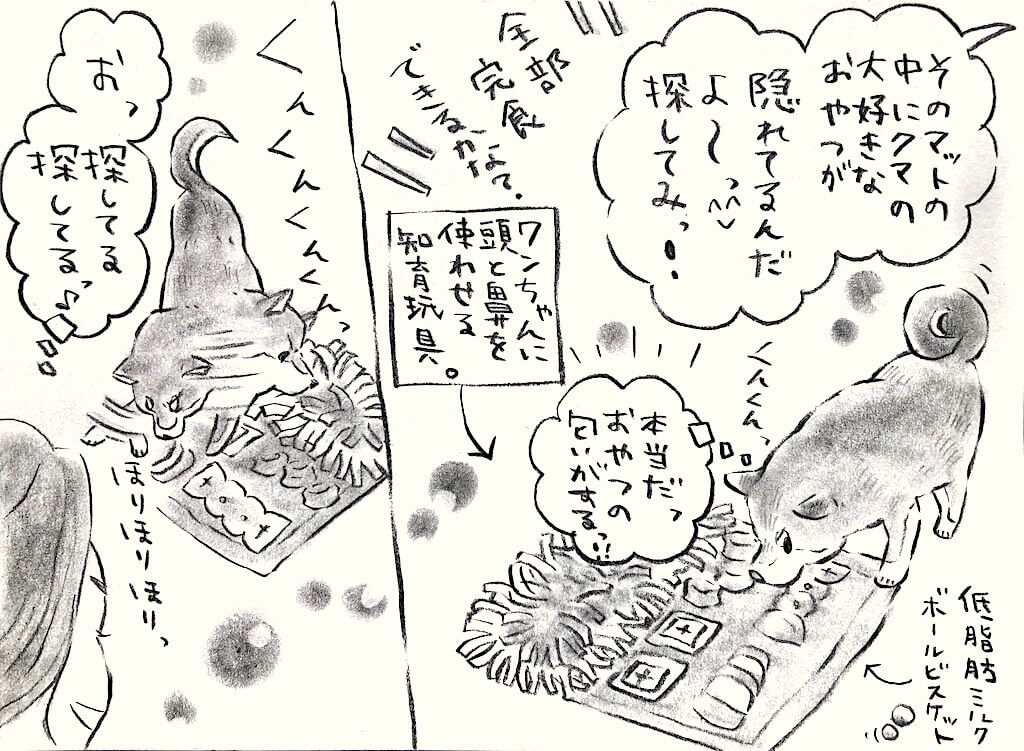 そのマットの
中にクマの
大好きな
おやつが
隠れてるんだ
よ〜っ^^
探してみっ!
くんくんっ
本当だっ
おやつの
匂いがするっ!!
低脂肪ミルク
ボールビスケット
全部
完食
できるかな?
ワンちゃんに
頭と鼻を
使わせる
知育玩具。
くんくんくんくんっ
おっ
探してる
探してるっ♪
ほりほりほりっ